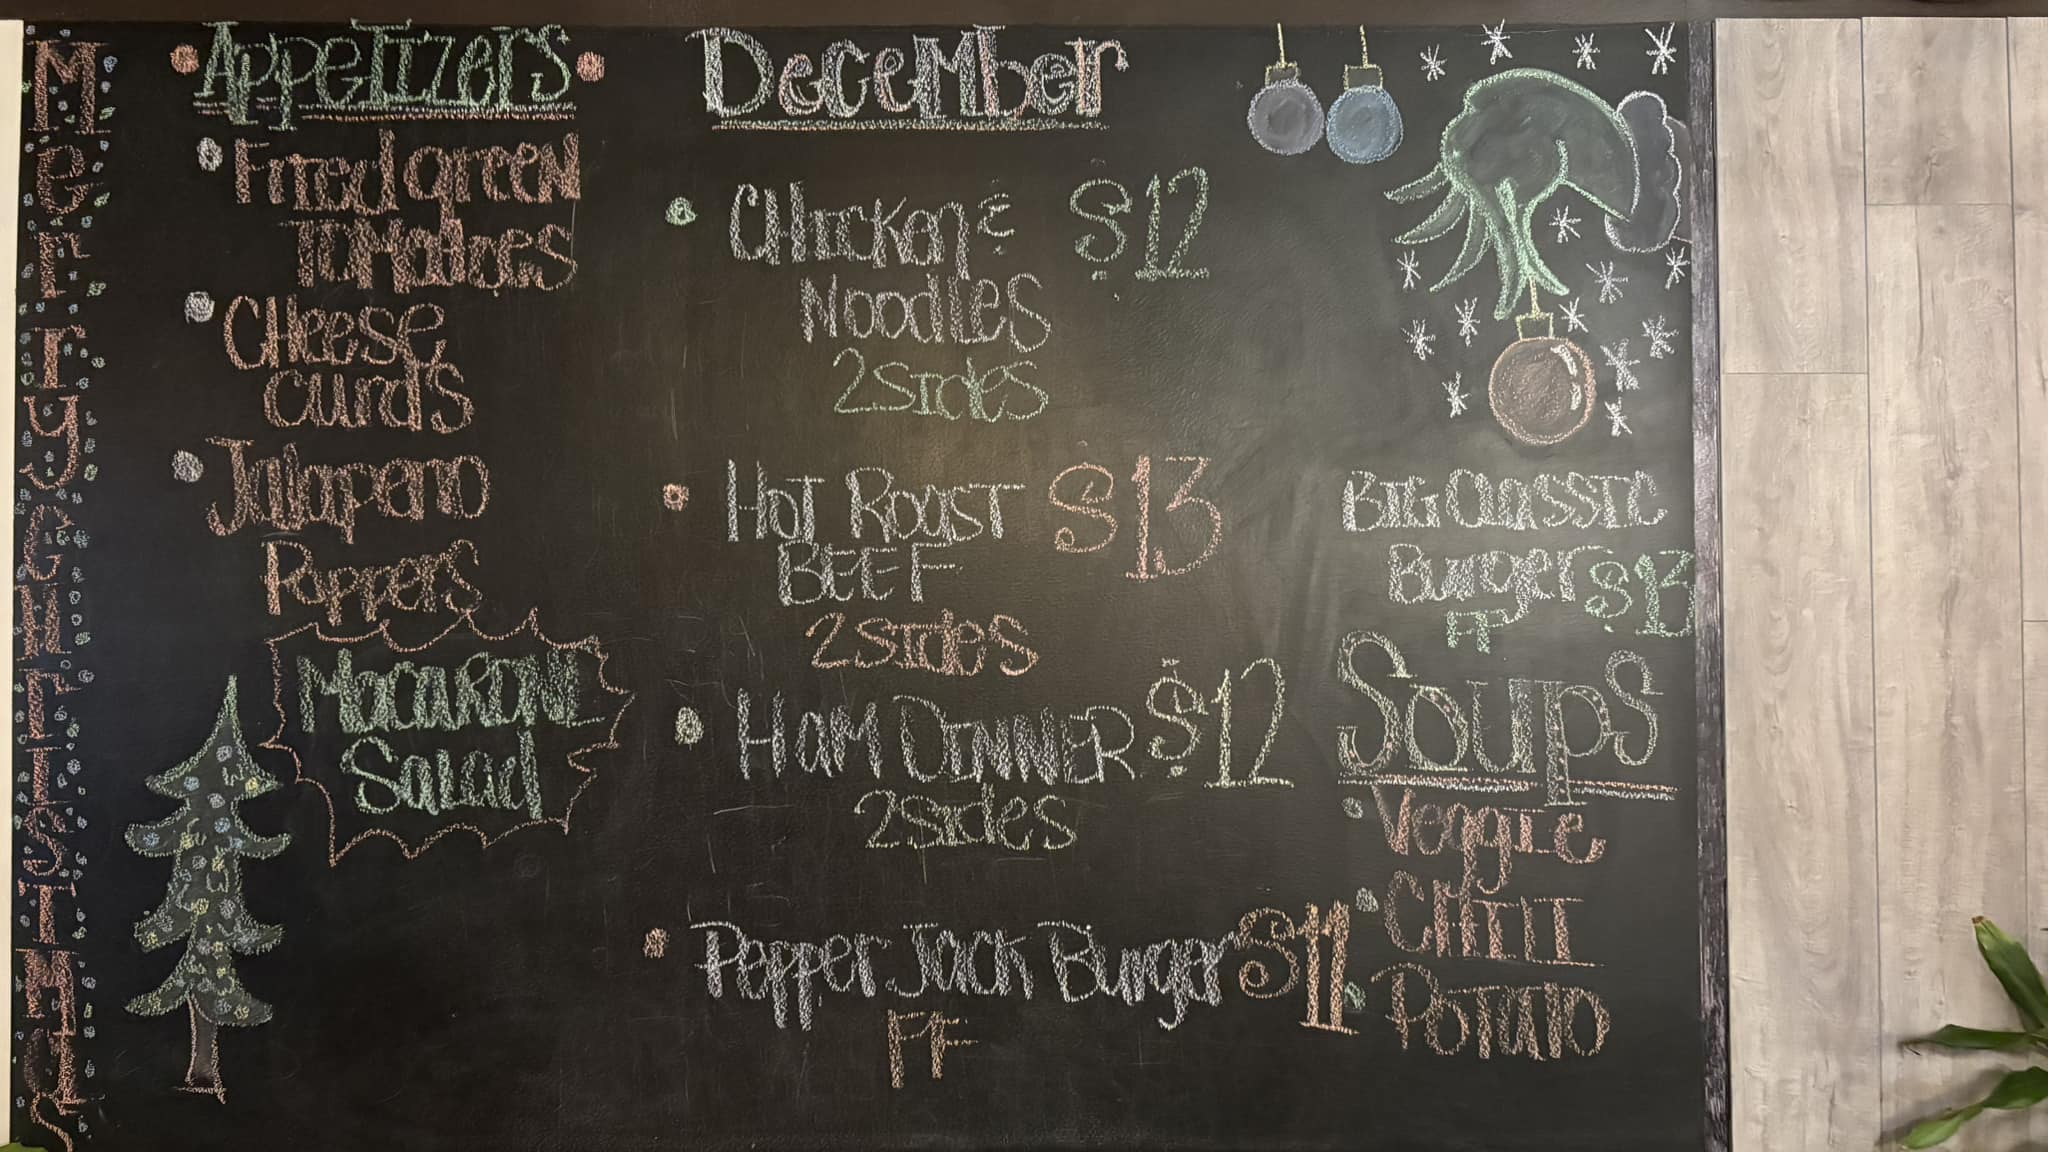 Merry Christmas
Appetizers
Fried green
Tomatoes
Cheese
Curds
Jallapeno
Poppers
Macaroni
Salad
December
Chicken & $12
Noodles
2 sides
Hot Roast $13
BEEF
2 sides
Ham Dinner $12
2 sides
Pepper Jack Burger $11
FF
Big Classic
Burger $13
FF
Soups
Veggie
Chili
Potato